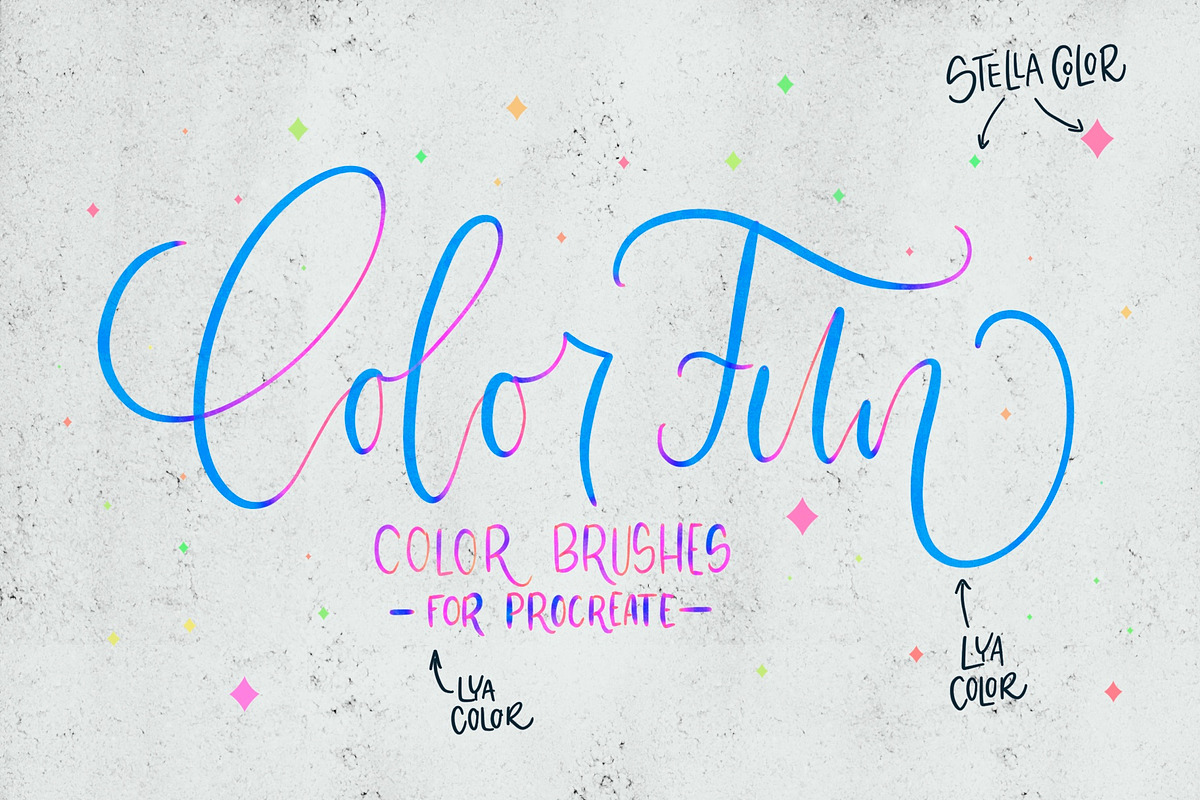 STELLA COLOR
Color Fun
COLOR BRUSHES
- FOR PROCREATE -
LYA
COLOR
LYA
COLOR